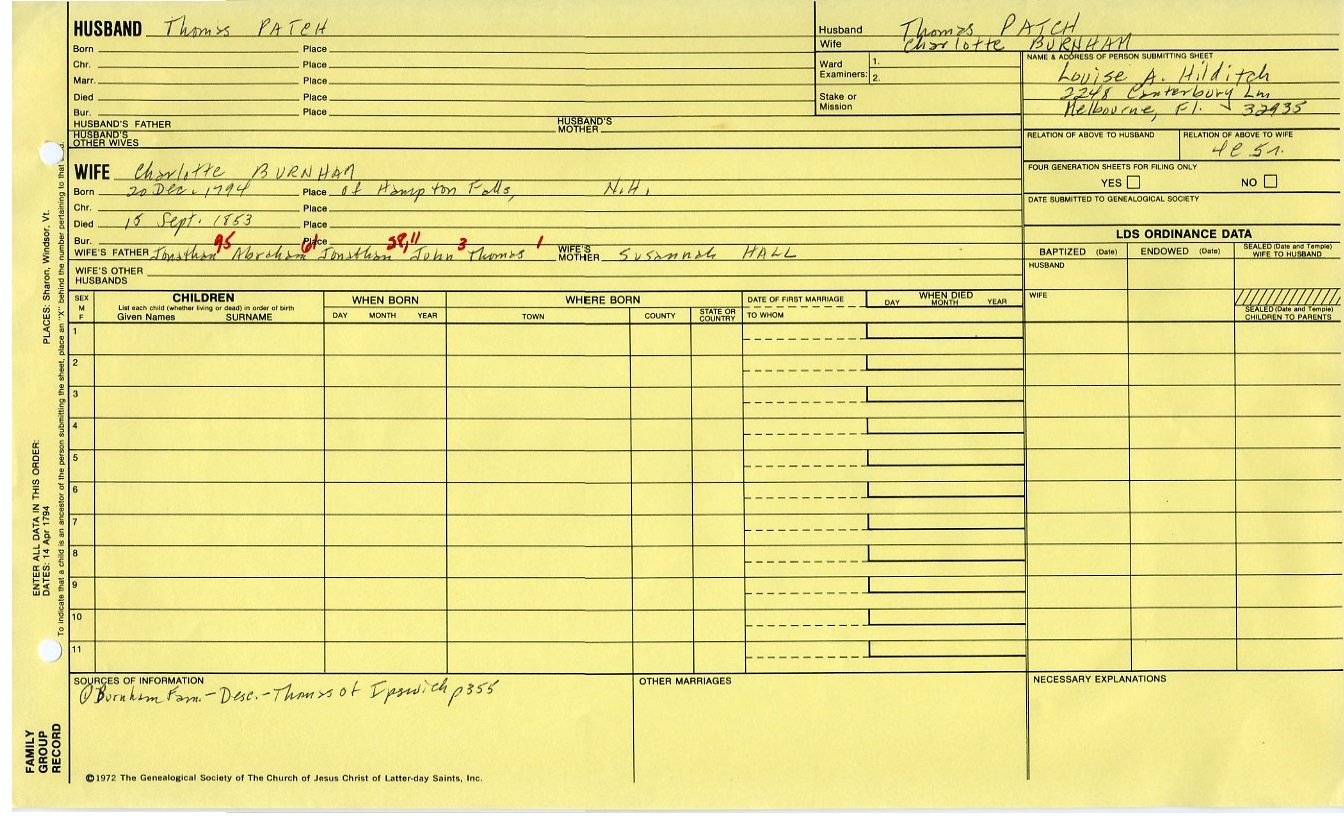 HUSBAND Thomas PATCH
Born Place
Chr. Place
Marr. Place
Died Place
Bur. Place
HUSBAND'S FATHER HUSBAND'S MOTHER
HUSBAND'S OTHER WIVES
Husband Thomas PATCH
Wife Charlotte BURNHAM
Ward Examiners: 1. 2.
Stake or Mission
NAME & ADDRESS OF PERSON SUBMITTING SHEET
Louise A. Hilditch
2248 Canterbury Ln
Melbourne, Fl. 32935
RELATION OF ABOVE TO HUSBAND RELATION OF ABOVE TO WIFE
4C 5r.
FOUR GENERATION SHEETS FOR FILING ONLY
YES NO
DATE SUBMITTED TO GENEALOGICAL SOCIETY
WIFE Charlotte BURNHAM
Born 20 Dec. 1794 Place of Hampton Falls, N.H.
Chr. Place
Died 15 Sept. 1853 Place
Bur. Place
95 61 58,11 3 1
WIFE'S FATHER Jonathan Abraham Jonathan John Thomas WIFE'S MOTHER Susannah HALL
WIFE'S OTHER HUSBANDS
LDS ORDINANCE DATA
BAPTIZED (Date) ENDOWED (Date) SEALED (Date and Temple) WIFE TO HUSBAND
HUSBAND
WIFE
SEALED (Date and Temple) CHILDREN TO PARENTS
SEX M F
CHILDREN
List each child (whether living or dead) in order of birth
Given Names SURNAME
WHEN BORN
DAY MONTH YEAR
WHERE BORN
TOWN COUNTY STATE OR COUNTRY
DATE OF FIRST MARRIAGE
TO WHOM
WHEN DIED
DAY MONTH YEAR
1
2
3
4
5
6
7
8
9
10
11
SOURCES OF INFORMATION
① Burnham Fam. - Desc. - Thomas of Ipswich p355
OTHER MARRIAGES
NECESSARY EXPLANATIONS
©1972 The Genealogical Society of The Church of Jesus Christ of Latter-day Saints, Inc.
FAMILY GROUP RECORD
ENTER ALL DATA IN THIS ORDER:
DATES: 14 Apr 1794
PLACES: Sharon, Windsor, Vt.
To indicate that a child is an ancestor of the person submitting the sheet, place an "X" behind the number pertaining to that